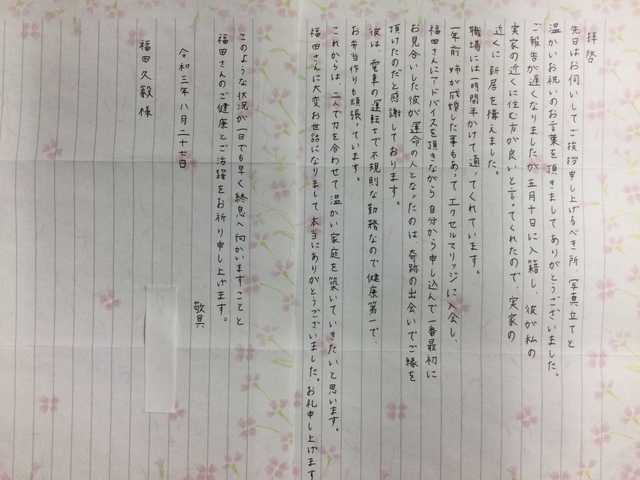 拝啓
先日はお伺いしてご挨拶申し上げるべき所、写真立てと
温かいお祝いのお言葉を頂きましてありがとうございました。
ご報告が遅くなりましたが五月十日に入籍し、彼が私の
実家の近くに住む方が良いと言ってくれたので、実家の
近くに新居を構えました。
職場には一時間半かけて通ってくれています。
一年前 姉が成婚した事もあって エクセルマリッジに入会し、
福田さんにアドバイスを頂きながら自分から申し込んで一番最初に
お見合いした彼が運命の人となったのは、奇跡の出会いでご縁を
頂けたのだと感謝しております。
彼は、電車の運転士で不規則な勤務なので健康第一で、
お弁当作りも頑張っています。
これからは 二人で力を合わせて 温かい家庭を築いていきたいと思います。
福田さんに大変お世話になりまして 本当にありがとうございました。お礼申し上げます
このような状況が一日でも早く終息へ向かいますことと
福田さんのご健康とご活躍をお祈り申し上げます。
敬具
令和三年八月二十七日
福田久毅様